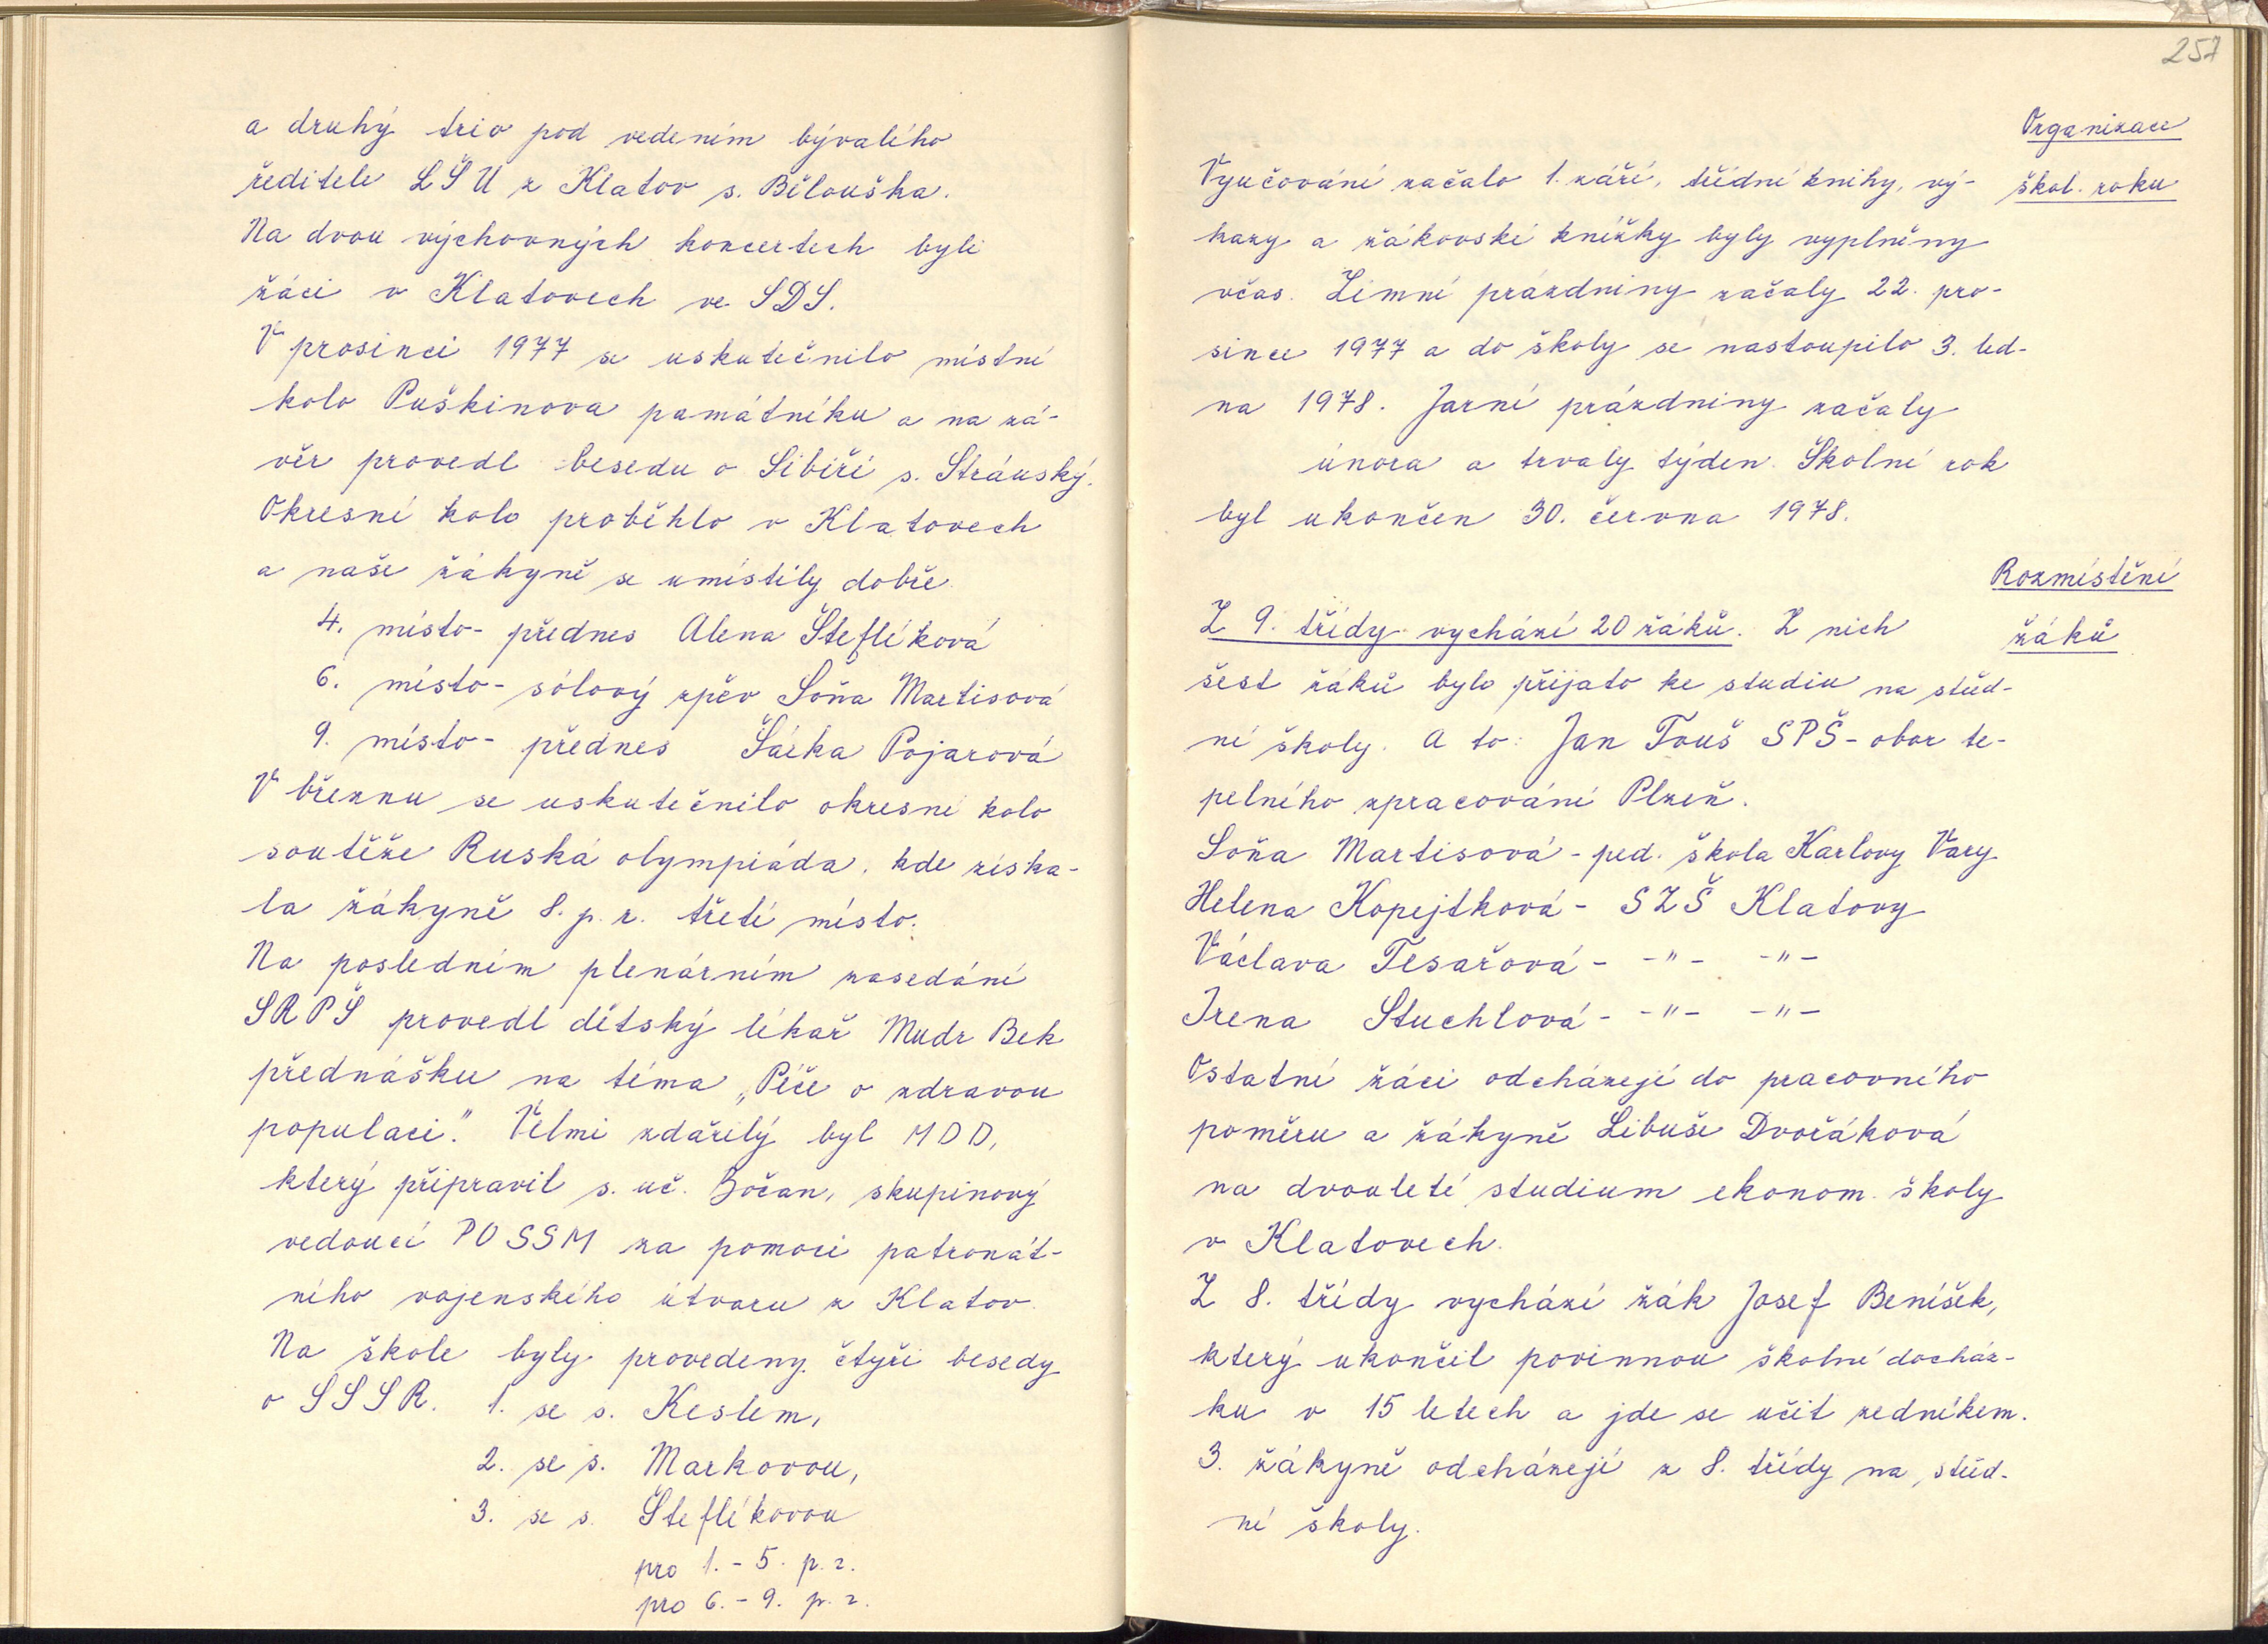 a druhý trio pod vedením bývalého
ředitele LŠU z Klatov s. Běłouška.
Na dvou výchovných koncertech byli
žáci v Klatovech ve SDS.
V prosinci 1977 se uskutečnilo místní
kolo Puškinova památníku a na zá-
věr provedl besedu o Sibiři s. Stráuský.
Okresní kolo proběhlo v Klatovech
a naše žákyně se umístily dobře.
4. místo - přednes Alena Šteflíková
6. místo - sólový zpěv Soňa Martisová
9. místo - přednes Šárka Pojarová
V březnu se uskutečnilo okresní kolo
soutěže Ruská olympiáda, kde získa-
la žákyně 8. p. r. třetí místo.
Na posledním plenárním zasedání
SRPŠ provedl dětský lékař Mudr Bek
přednášku na téma „Péče o zdravou
populaci." Velmi zdařilý byl MDD,
který připravil s. uč. Bočan, skupinový
vedoucí PO SSM za pomoci patronát-
ního vojenského útvaru z Klatov.
Na škole byly provedeny čtyři besedy
o SSSR. 1. se s. Keslem,
2. se s. Markovou,
3. se s. Šteflíkovou
pro 1. - 5. p. r.
pro 6. - 9. p. r.
257
Organizace
škol. roku
Vyučování začalo 1. září, třídní knihy, vý-
kazy a žákovské knížky byly vyplněny
včas. Zimní prázdniny začaly 22. pro-
since 1977 a do školy se nastoupilo 3. led-
na 1978. Jarní prázdniny začaly
února a trvaly týden. Školní rok
byl ukončen 30. června 1978.
Rozmístění
žáků
Z 9. třídy vychází 20 žáků. Z nich
šest žáků bylo přijato ke studiu na střed-
ní školy. A to: Jan Touš SPŠ - obor te-
pelného zpracování Plzeň.
Soňa Martisová - ped. škola Karlovy Vary
Helena Kopejtková - SZŠ Klatovy
Václava Tesařová - -"- -"-
Irena Stuchlová - -"- -"-
Ostatní žáci odcházejí do pracovního
poměru a žákyně Libuše Dvořáková
na dvouleté studium ekonom. školy
v Klatovech.
Z 8. třídy vychází žák Josef Beníšek,
který ukončil povinnou školní docház-
ku v 15 letech a jde se učit zedníkem.
3. žákyně odcházejí z 8. třídy na střed-
ní školy.